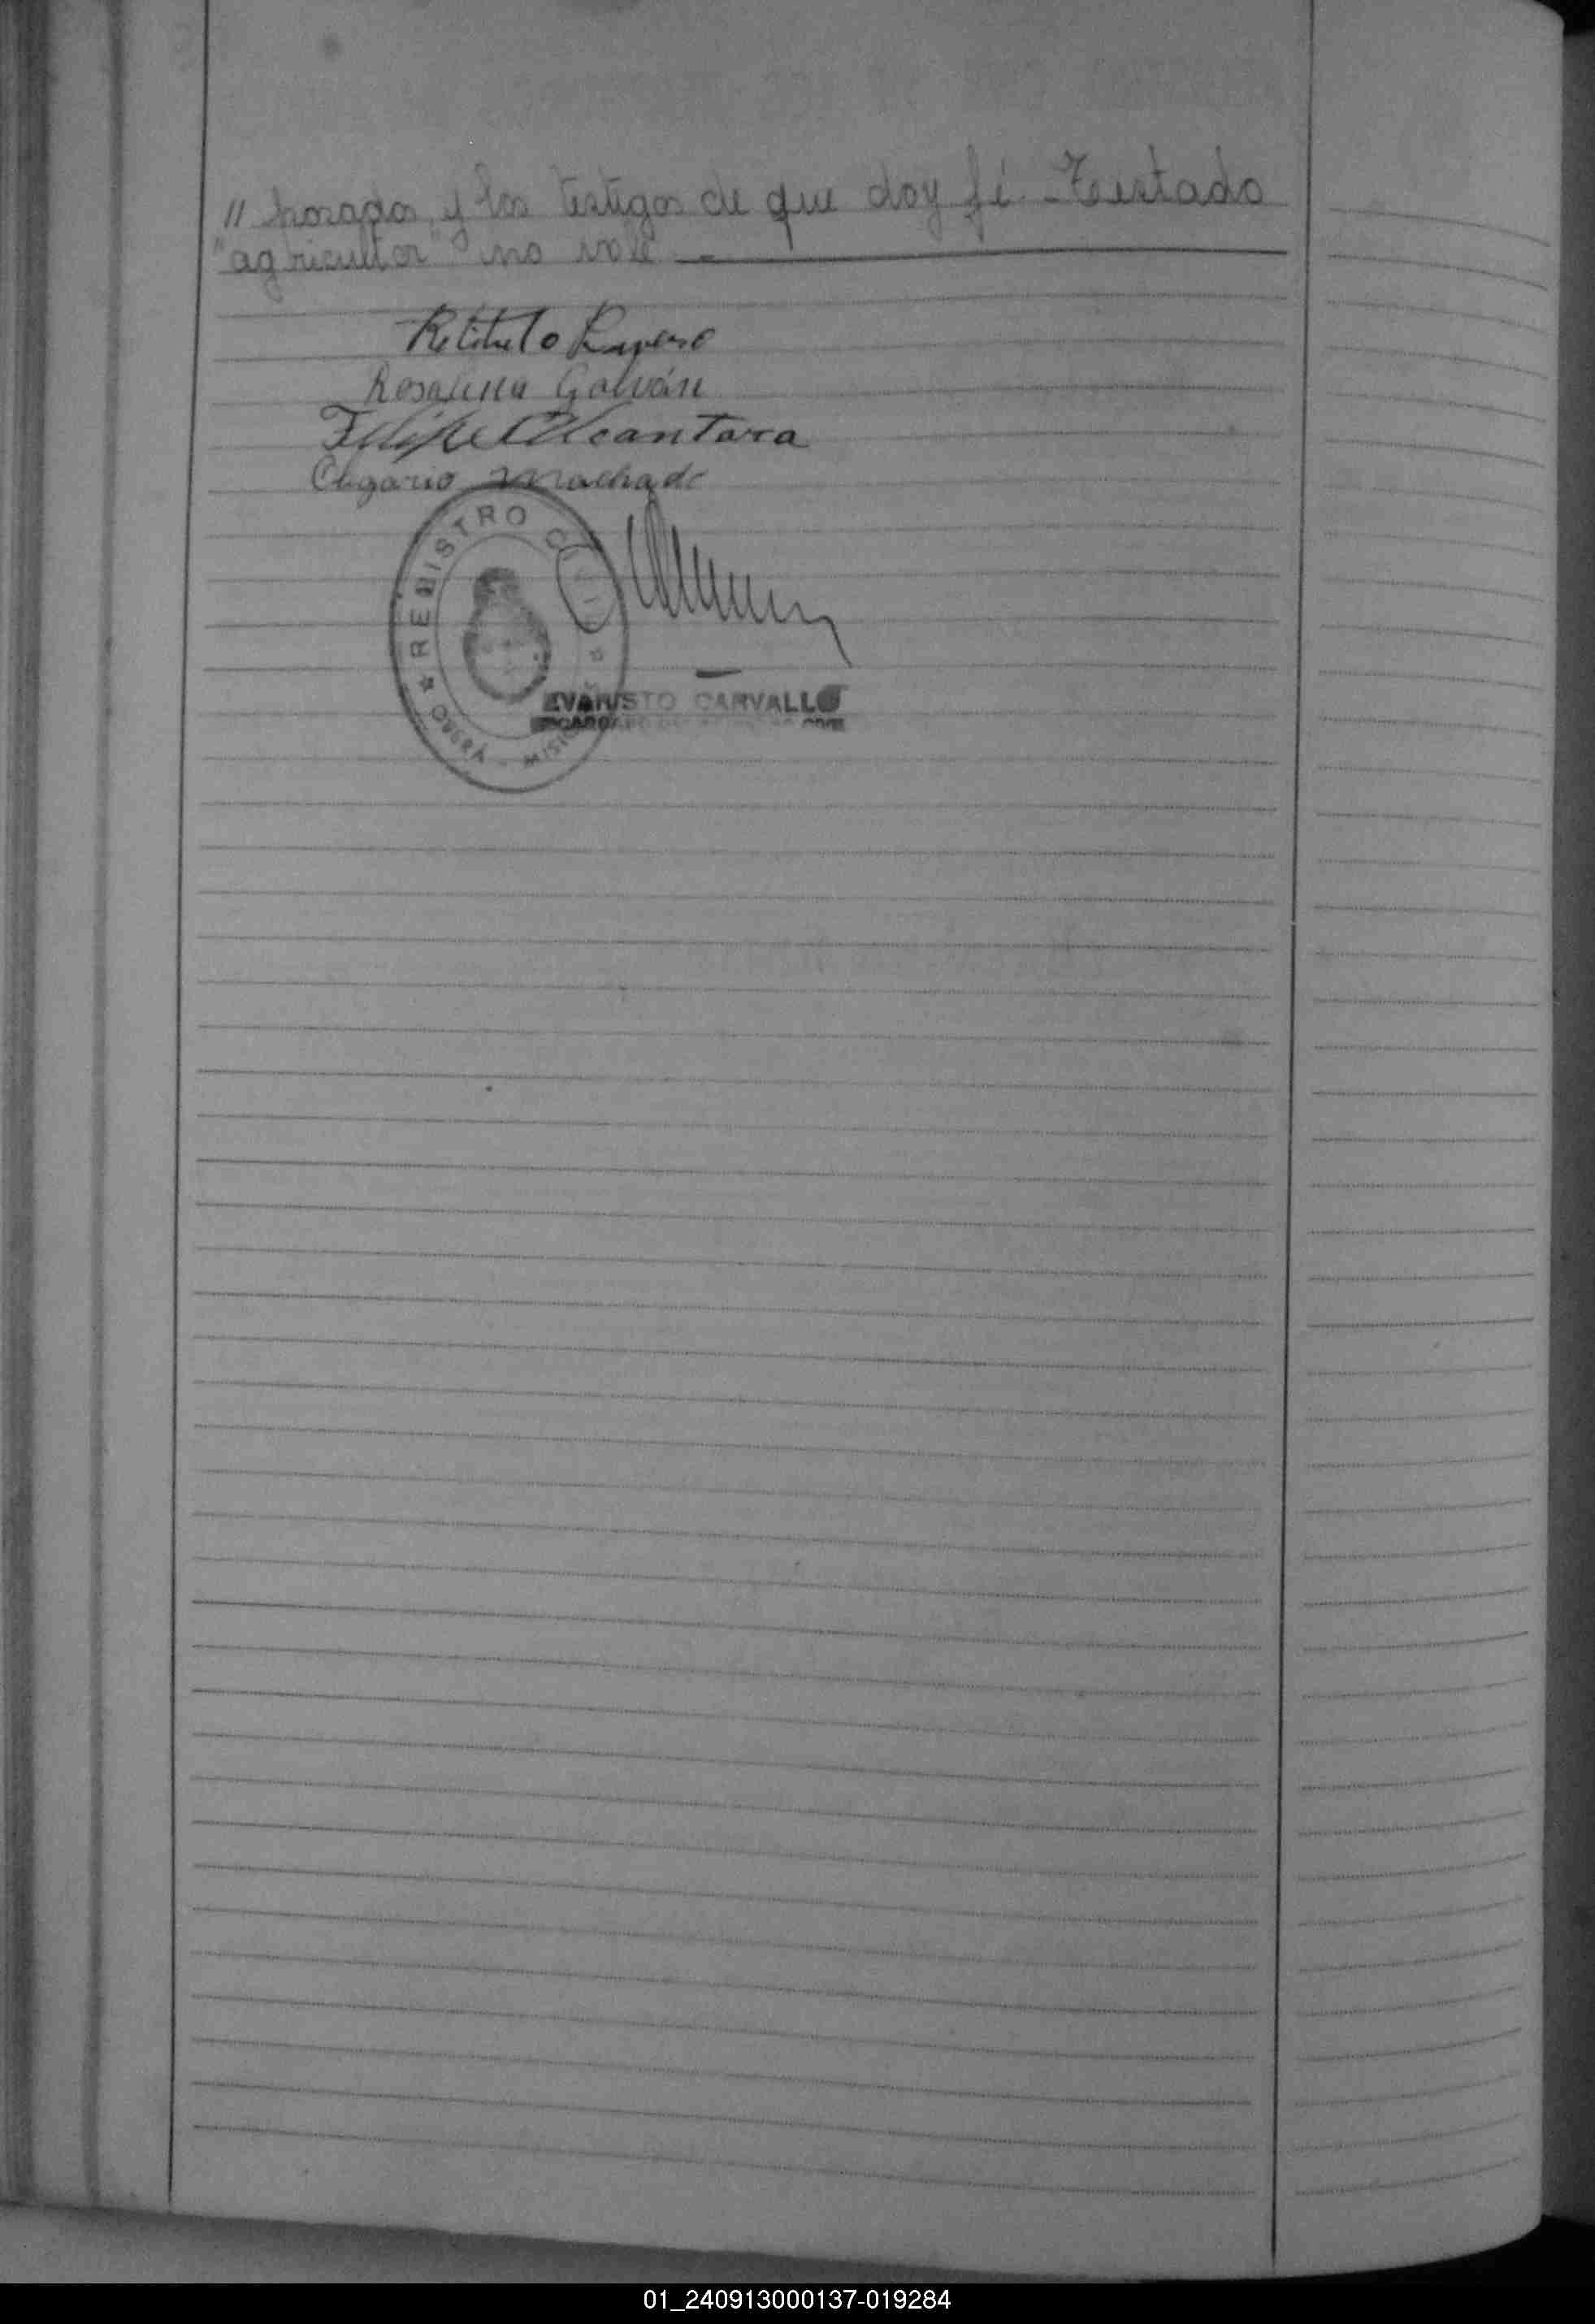 // horados, y los testigos de que doy fé. - Testado
"agricultor" no vale. -
Restituto Rivero
Rosalina Galván
Felipe Alcantara
Olegario Machado
REGISTRO CIVIL
OBERÁ - MISIONES
EVARISTO CARVALLO
01_240913000137-019284